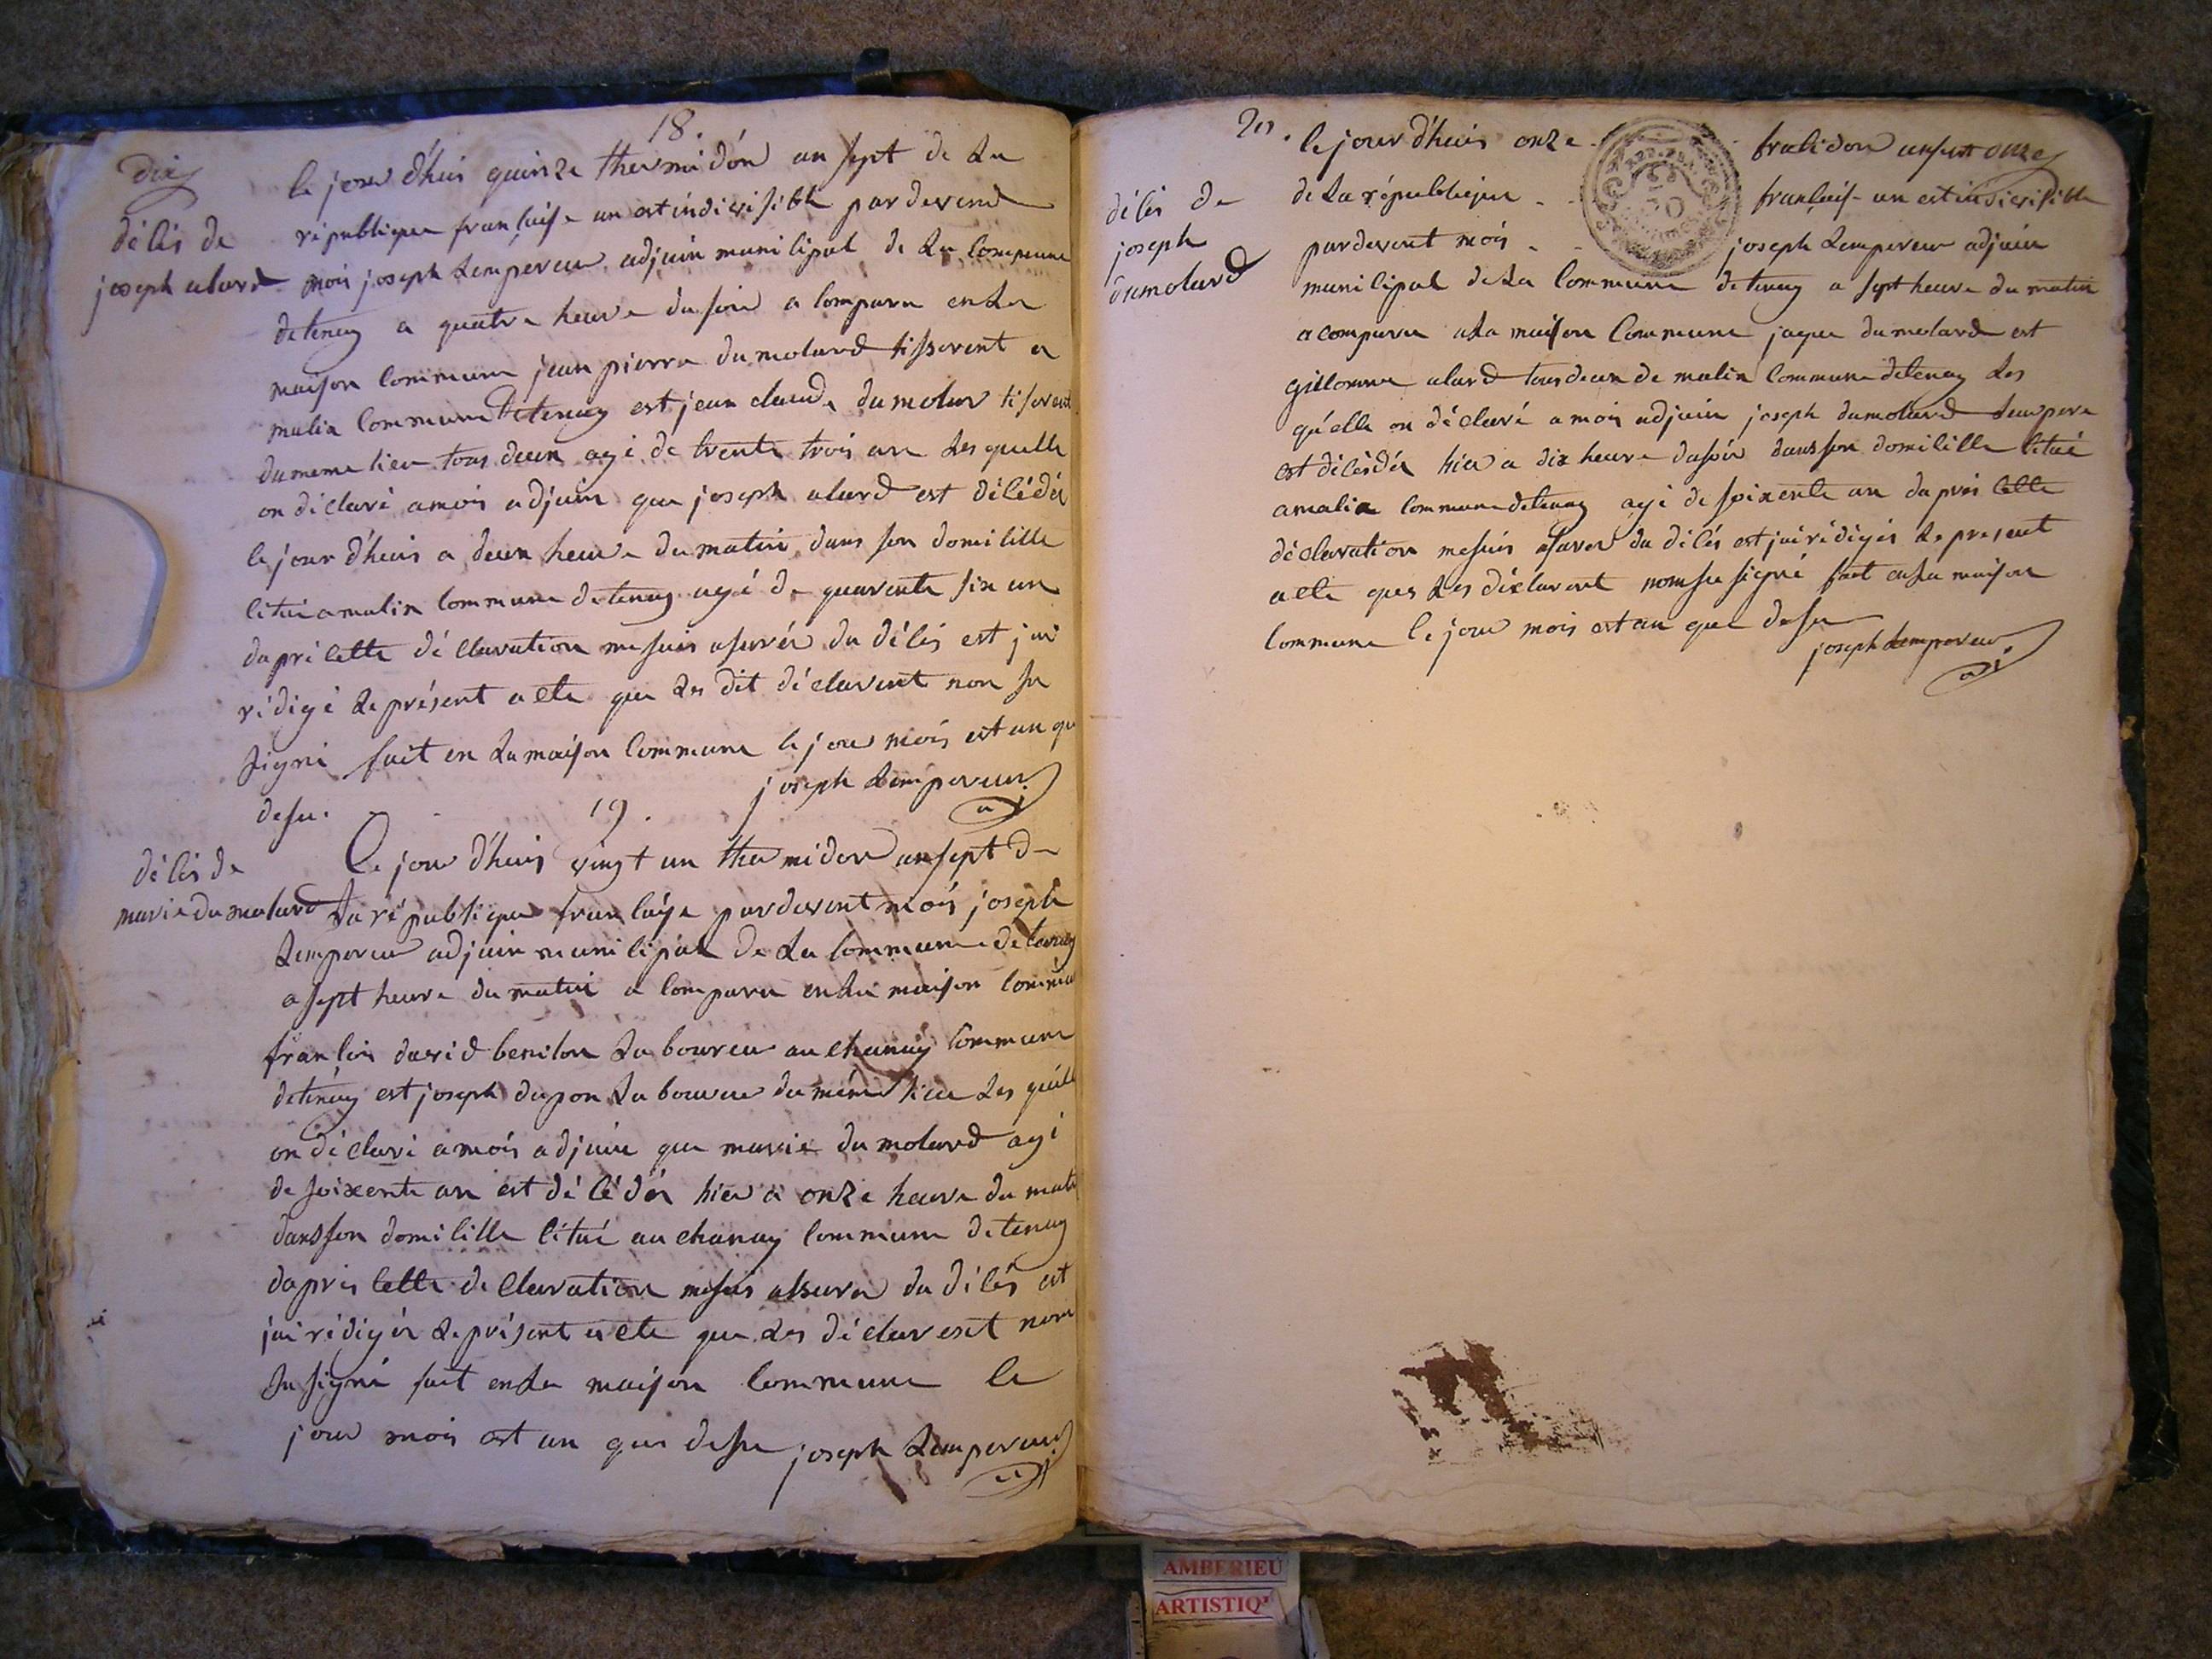 18.
dix
décés de
joseph alard
le jour d'huis quinze thermidor an sept de La
république française un est indivisible pardevend
mois joseph Lempereur adjuin municipal de La Commune
detenay a quatre heure du soir a comparu en La
maison Commune jean pierre dumolard tisserent a
malix Commune detenay est jean claude dumolar tiserent
dumeme lieu tous deux agé de trente trois an Les quelle
on déclaré amois adjuin que joseph alard est décédés
le jour d'huis a deux heure du matin dans son domicille
citué a malix commune detenay agé de quarente six an
daprè cette déclaration me suis asuré du décés est jai
rédigé Le présent acte que Les dit déclarent non su
signé fait en La maison Commune le jour mois est an que
desu. joseph Lempereur
19.
décés de
marie dumolard
le jour d'huis vingt un thermidor an sept de
La république française pardevent mois joseph
Lempereur adjuin municipal de La Commune detenay
a sept heure du matin a comparu en La maison commune
francois david benilon Laboureur au chanay Commune
detenay est joseph dupon Laboureur du même lieu Les quelle
on déclaré amois adjuin que marie dumolard agé
de soixente an est décédés hier a onze heure du matin
dans son domicille citué au chanay Commune detenay
daprès cette declaration me suis assuré du décés est
jai rédigés Le présent acte que Les déclarent non
su signé fait en La maison Commune le
jour mois est an que desu joseph Lempereur
20.
onze
décés de
joseph
dumolard
le jour d'huis onze frutidor an sept
de La république française un est indivisible
pardevent mois joseph Lempereur adjuin
municipal de La Commune detenay a sept heure du matin
a comparu a La maison Commune jaque dumolard est
guilloume alard tous deux de malix Commune detenay Les
quelle on déclaré a mois adjuin joseph dumolard
est décédés hier a dix heure du soir dans son domicille citué
amalix commune detenay agé de soixente an daprès cette
déclaration me suis asuré du décés est jai rédigés Le present
acte que Les déclarent non su signé fait en La maison
Commune le jour mois est an que desu
joseph Lempereur
AMBERIEU
ARTISTIQ